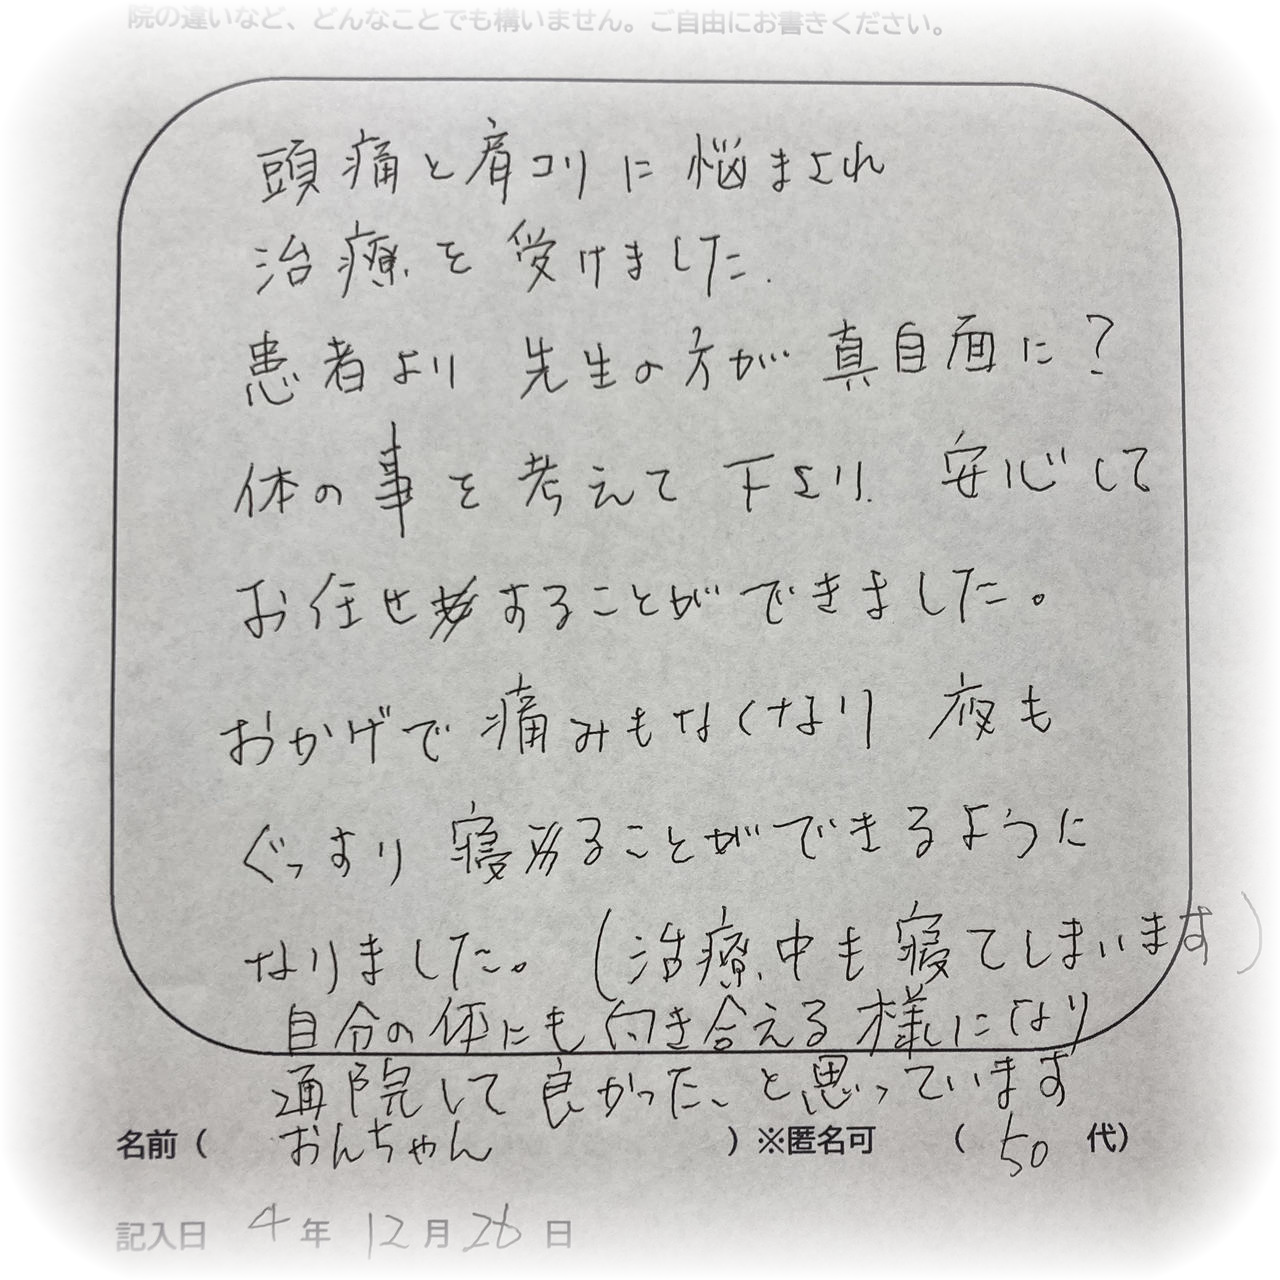 院の違いなど、どんなことでも構いません。ご自由にお書きください。
頭痛と肩コリに悩まされ
治療を受けました.
患者より 先生の方が 真自面に?
体の事を考えて下さり. 安心して
お任せすることができました。
おかげで痛みもなくなり 夜も
ぐっすり寝ることができるように
なりました。(治療中も寝てしまいます)
自分の体にも向き合える様になり
通院して良かった、と思っています
名前( おんちゃん )※匿名可 ( 50 代)
記入日 4年 12月26日